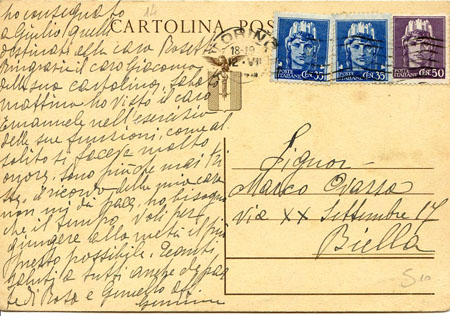 ho consegnato
a Giulio quelle
destinate alla cara Rosetta
Ringrazia il caro Giacomo
della sua cartolina.
mattina ho visto il caro
Emanuele nell'esercizio
delle sue funzioni come al
solito ti facega molto
onore. sono più che mai
il ricordo della mia cara
non mi dà pace, ho bisogno
che il tempo voli per
giungere alla metà il più
presto possibile. Tanti
saluti a tutti anche da parte
te di Rosa e
14
CARTOLINA POS
TORINO
18-19
12 VII
POSTE ITALIANE CENT 35
POSTE ITALIANE CENT 35
POSTE ITALIANE CENT 50
Signor
Marco
Via XX Settembre 17
Biella